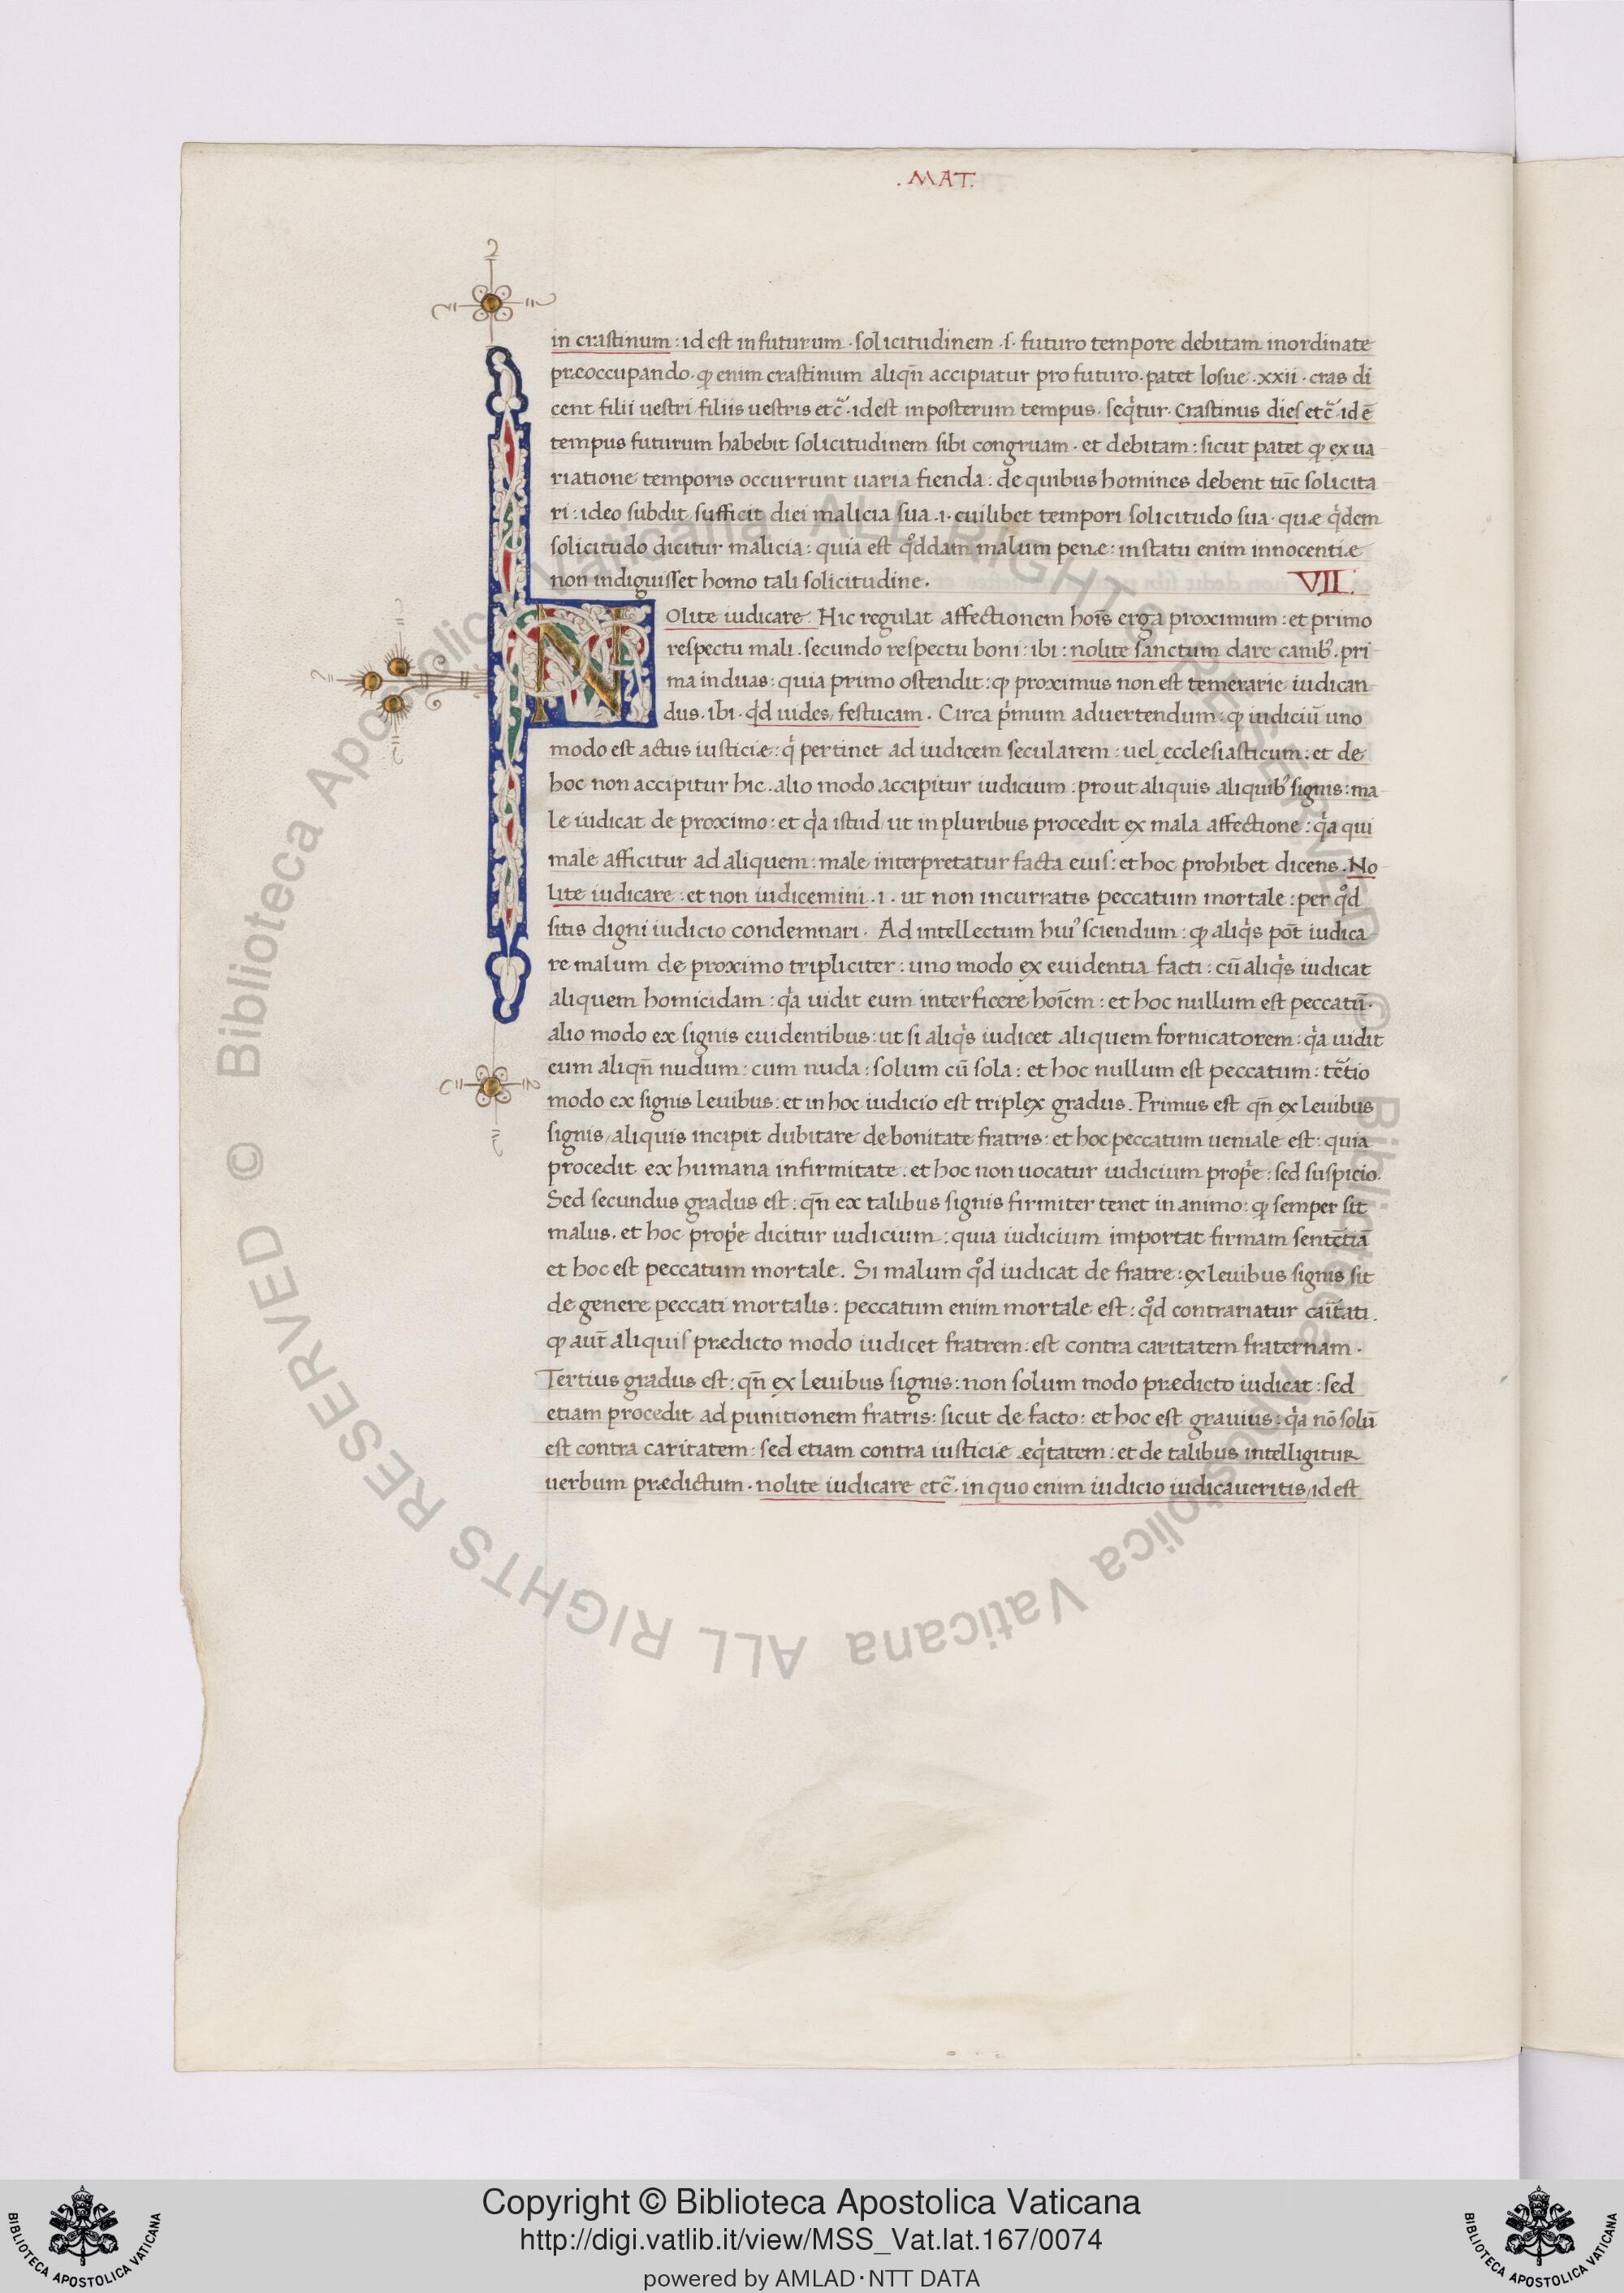 .MAT.
in crastinum : id est in futurum · solicitudinem ·s· futuro tempore debitam inordinate
præoccupando · ꝙ enim crastinum aliqn̄ accipiatur pro futuro · patet Iosue · xxii · cras di
cent filii uestri filiis uestris etc̃ · id est in posterum tempus · seqͥtur · Crastinus dies etc̃ · id ē
tempus futurum habebit solicitudinem sibi congruam · et debitam : sicut patet ꝙ ex ua
riatione temporis occurrunt uaria fienda : de quibus homines debent tūc solicita
ri : ideo subdit sufficit diei malicia sua .i. cuilibet tempori solicitudo sua · quæ qͥdem
solicitudo dicitur malicia : quia est qͦddam malum penæ : in statu enim innocentiæ
non indiguisset homo tali solicitudine .
VII.
NOlite iudicare · Hic regulat affectionem hoīs erga proximum : et primo
respectu mali . secundo respectu boni : ibi : nolite sanctum dare canibꝰ . pri
ma in duas : quia primo ostendit : ꝙ proximus non est temerarie iudican
dus . ibi . qͥd uides festucam . Circa pͥmum aduertendum : ꝙ iudiciū uno
modo est actus iusticiæ : qͥ pertinet ad iudicem secularem : uel ecclesiasticum : et de
hoc non accipitur hic . alio modo accipitur iudicium : prout aliquis aliquibꝰ signis : ma
le iudicat de proximo : et qͥa istud ut in pluribus procedit ex mala affectione : qͥa qui
male afficitur ad aliquem : male interpretatur facta eius : et hoc prohibet dicens . No
lite iudicare : et non iudicemini .i. ut non incurratis peccatum mortale : per qͦd
sitis digni iudicio condemnari . Ad intellectum huiꝰ sciendum : ꝙ aliqͥs pōt iudica
re malum de proximo tripliciter : uno modo ex euidentia facti : cū aliqͥs iudicat
aliquem homicidam : qͥa uidit eum interficere hoīem : et hoc nullum est peccatū .
alio modo ex signis euidentibus : ut si aliqͥs iudicet aliquem fornicatorem : qͥa uidit
eum aliqn̄ nudum : cum nuda : solum cū sola : et hoc nullum est peccatum : tētio
modo ex signis leuibus : et in hoc iudicio est triplex gradus . Primus est qn̄ ex leuibus
signis / aliquis incipit dubitare de bonitate fratris : et hoc peccatum ueniale est : quia
procedit ex humana infirmitate . et hoc non uocatur iudicium propͥe : sed suspicio .
Sed secundus gradus est : qn̄ ex talibus signis firmiter tenet in animo : ꝙ semper sit
malus . et hoc propͥe dicitur iudicium : quia iudicium importat firmam sentētiā
et hoc est peccatum mortale . Si malum qͦd iudicat de fratre : ex leuibus signis sit
de genere peccati mortalis : peccatum enim mortale est : qͦd contrariatur cait̄ati .
ꝙ aut̄ aliquis prædicto modo iudicet fratrem : est contra caritatem fraternam .
Tertius gradus est : qn̄ ex leuibus signis : non solum modo prædicto iudicat : sed
etiam procedit ad punitionem fratris : sicut de facto : et hoc est grauius : qͥa nō solū
est contra caritatem : sed etiam contra iusticiæ æqͥtatem : et de talibus intelligitur
uerbum prædictum . nolite iudicare etc̃ . in quo enim iudicio iudicaueritis / id est
© Biblioteca Apostolica Vaticana ALL RIGHTS RESERVED © Biblioteca Apostolica Vaticana ALL RIGHTS RESERVED
Copyright © Biblioteca Apostolica Vaticana
http://digi.vatlib.it/view/MSS_Vat.lat.167/0074
powered by AMLAD·NTT DATA
BIBLIOTECA APOSTOLICA VATICANA
BIBLIOTECA APOSTOLICA VATICANA